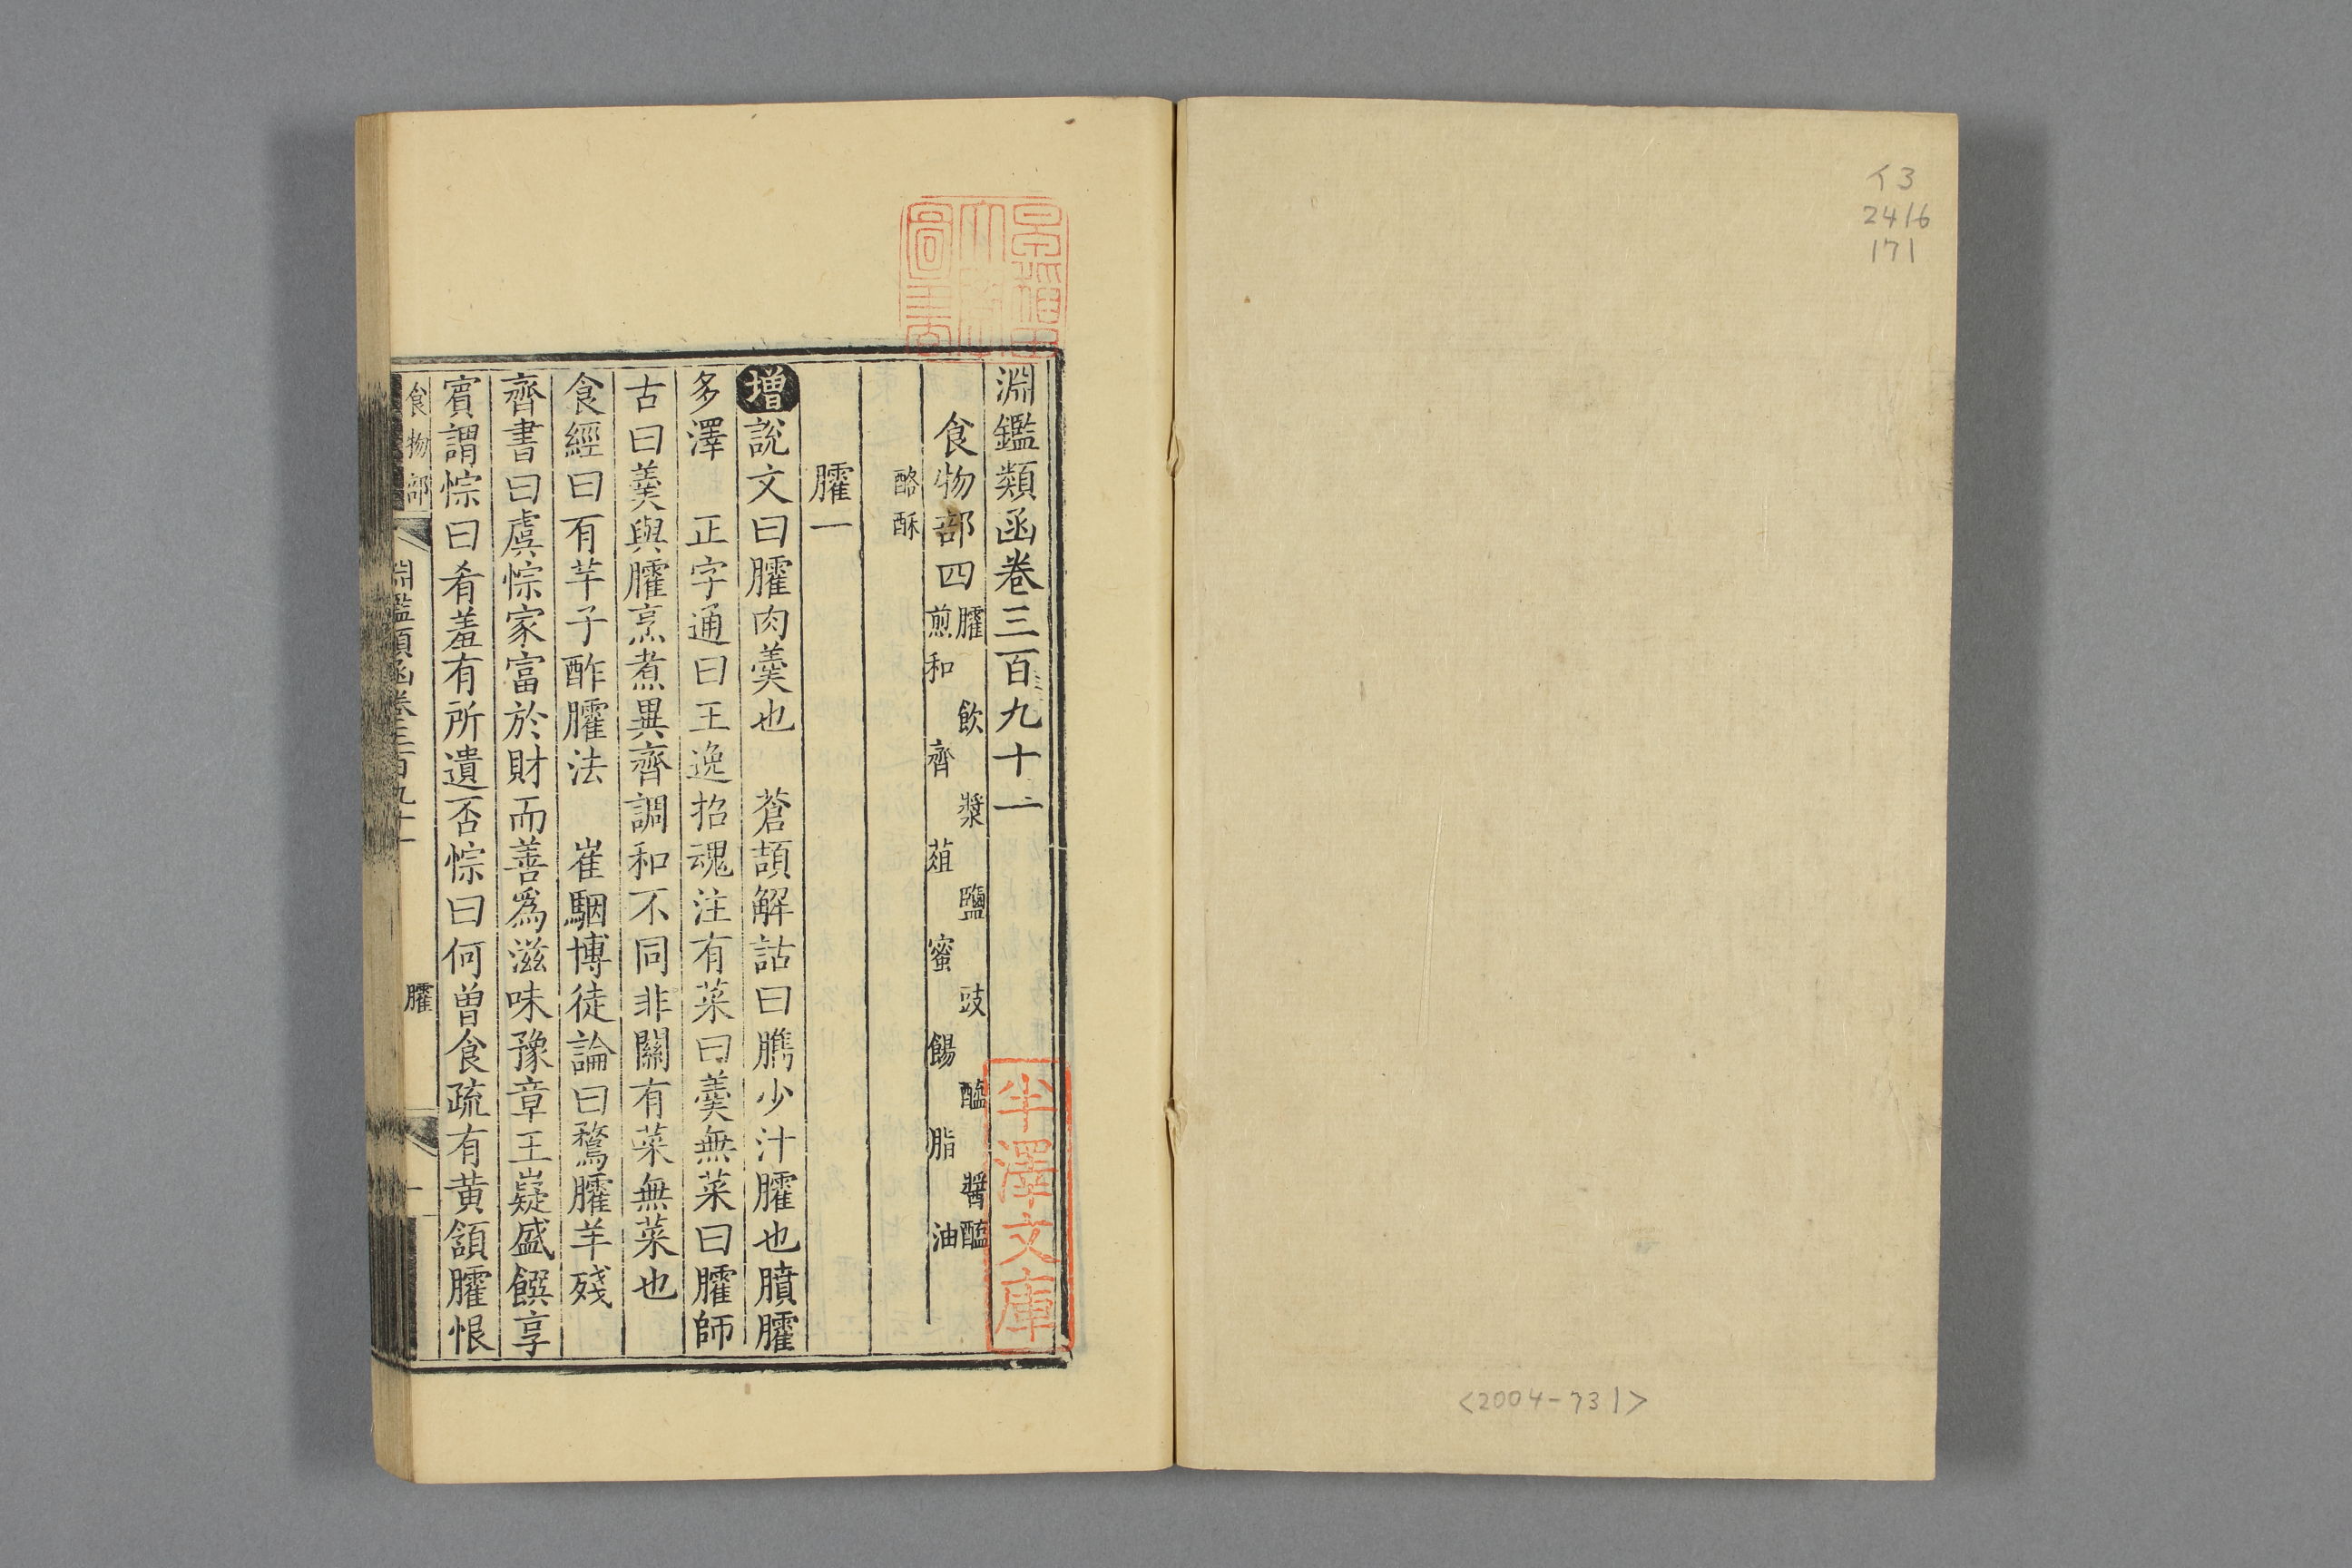 イ3
2416
171
<2004-731>
早稲田大學圖書
半澤文庫
淵鑑類函卷三百九十一
食物部四 臛 飲 漿 鹽 豉 醢 醬 醯
煎和 齊 葅 蜜 餳 脂 油
酪 酥
臛一
增說文曰臛肉羹也 蒼頡解詁曰臇少汁臛也膹臛
多澤 正字通曰王逸招魂注有菜曰羹無菜曰臛師
古曰羹與臛烹煮異齊調和不同非關有菜無菜也
食經曰有芋子酢臛法 崔駰博徒論曰鶩臛羊殘
齊書曰虞悰家富於財而善為滋味豫章王嶷盛饌享
賓謂悰曰肴羞有所遺否悰曰何曾食疏有黃頷臛恨
食物部 淵鑑類函卷三百九十一 臛 一